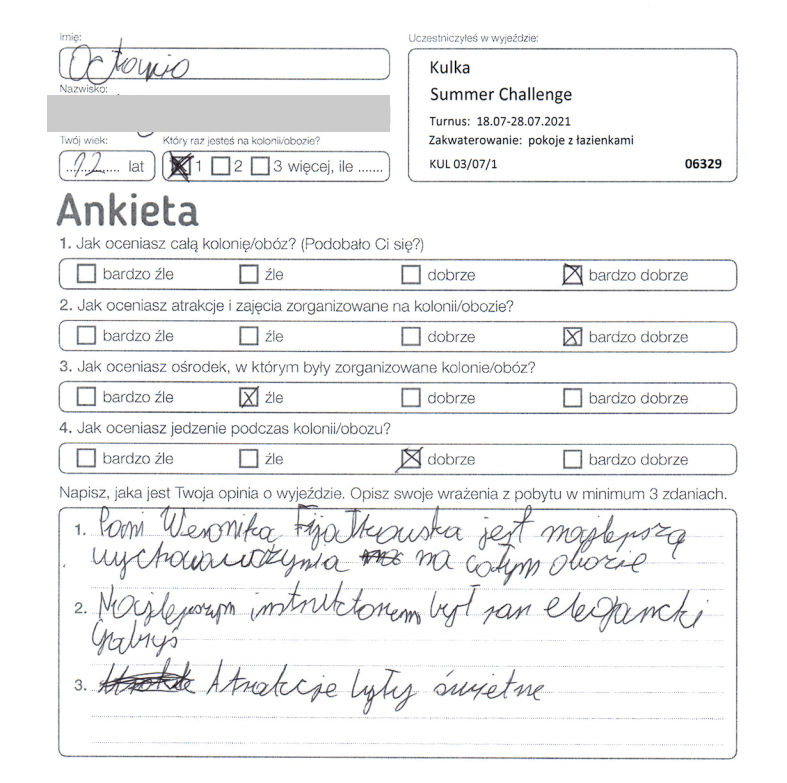 Imię:
Octavio
Nazwisko:
Twój wiek:
12 lat
Który raz jesteś na kolonii/obozie?
1 2 3 więcej, ile .......
Uczestniczyłeś w wyjeździe:
Kulka
Summer Challenge
Turnus: 18.07-28.07.2021
Zakwaterowanie: pokoje z łazienkami
KUL 03/07/1 06329
Ankieta
1. Jak oceniasz całą kolonię/obóz? (Podobało Ci się?)
bardzo źle źle dobrze bardzo dobrze
2. Jak oceniasz atrakcje i zajęcia zorganizowane na kolonii/obozie?
bardzo źle źle dobrze bardzo dobrze
3. Jak oceniasz ośrodek, w którym były zorganizowane kolonie/obóz?
bardzo źle źle dobrze bardzo dobrze
4. Jak oceniasz jedzenie podczas kolonii/obozu?
bardzo źle źle dobrze bardzo dobrze
Napisz, jaka jest Twoja opinia o wyjeździe. Opisz swoje wrażenia z pobytu w minimum 3 zdaniach.
1. Pani Weronika Fijałkowska jest najlepszą
wychowawczynia na całym obozie
2. Najlepszym instruktorem był pan elegancki
Gabryś
3. Atrakcje były świetne